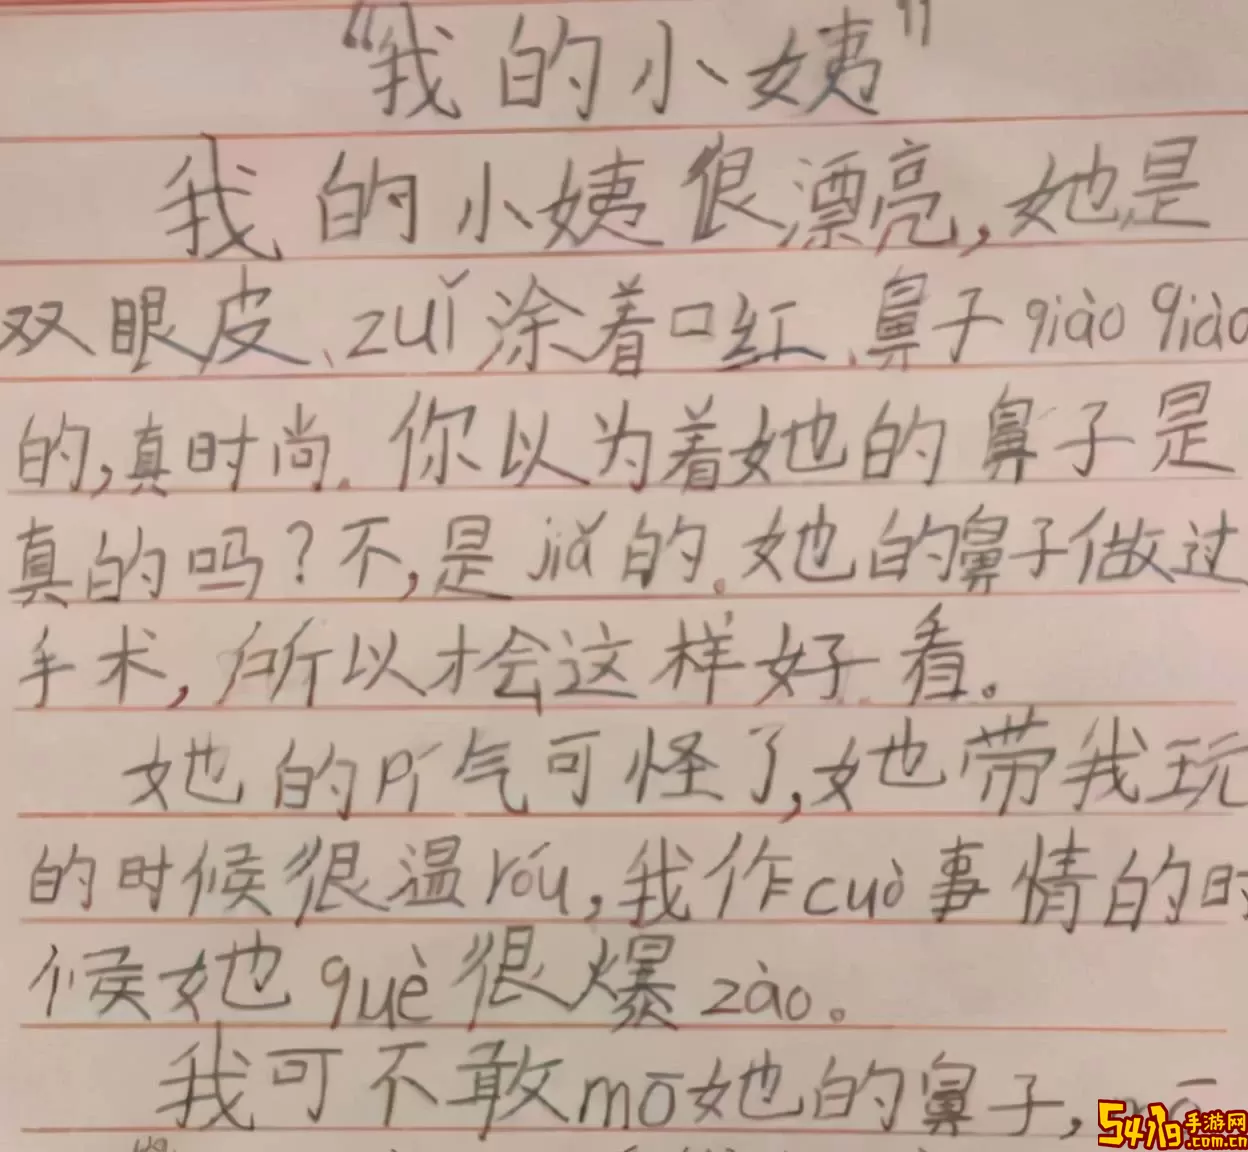 “我的小姨”
我的小姨很漂亮,她是
双眼皮、zuǐ涂着口红、鼻子qiào qiào
的,真时尚.你以为着她的鼻子是
真的吗?不,是jiǎ的。她的鼻子做过
手术,所以才会这样好看。
她的pí气可怪了,她带我玩
的时候很温róu,我作cuò事情的时
候她què很爆zào。
我可不敢mō她的鼻子,
5417g手游网
.com.cn